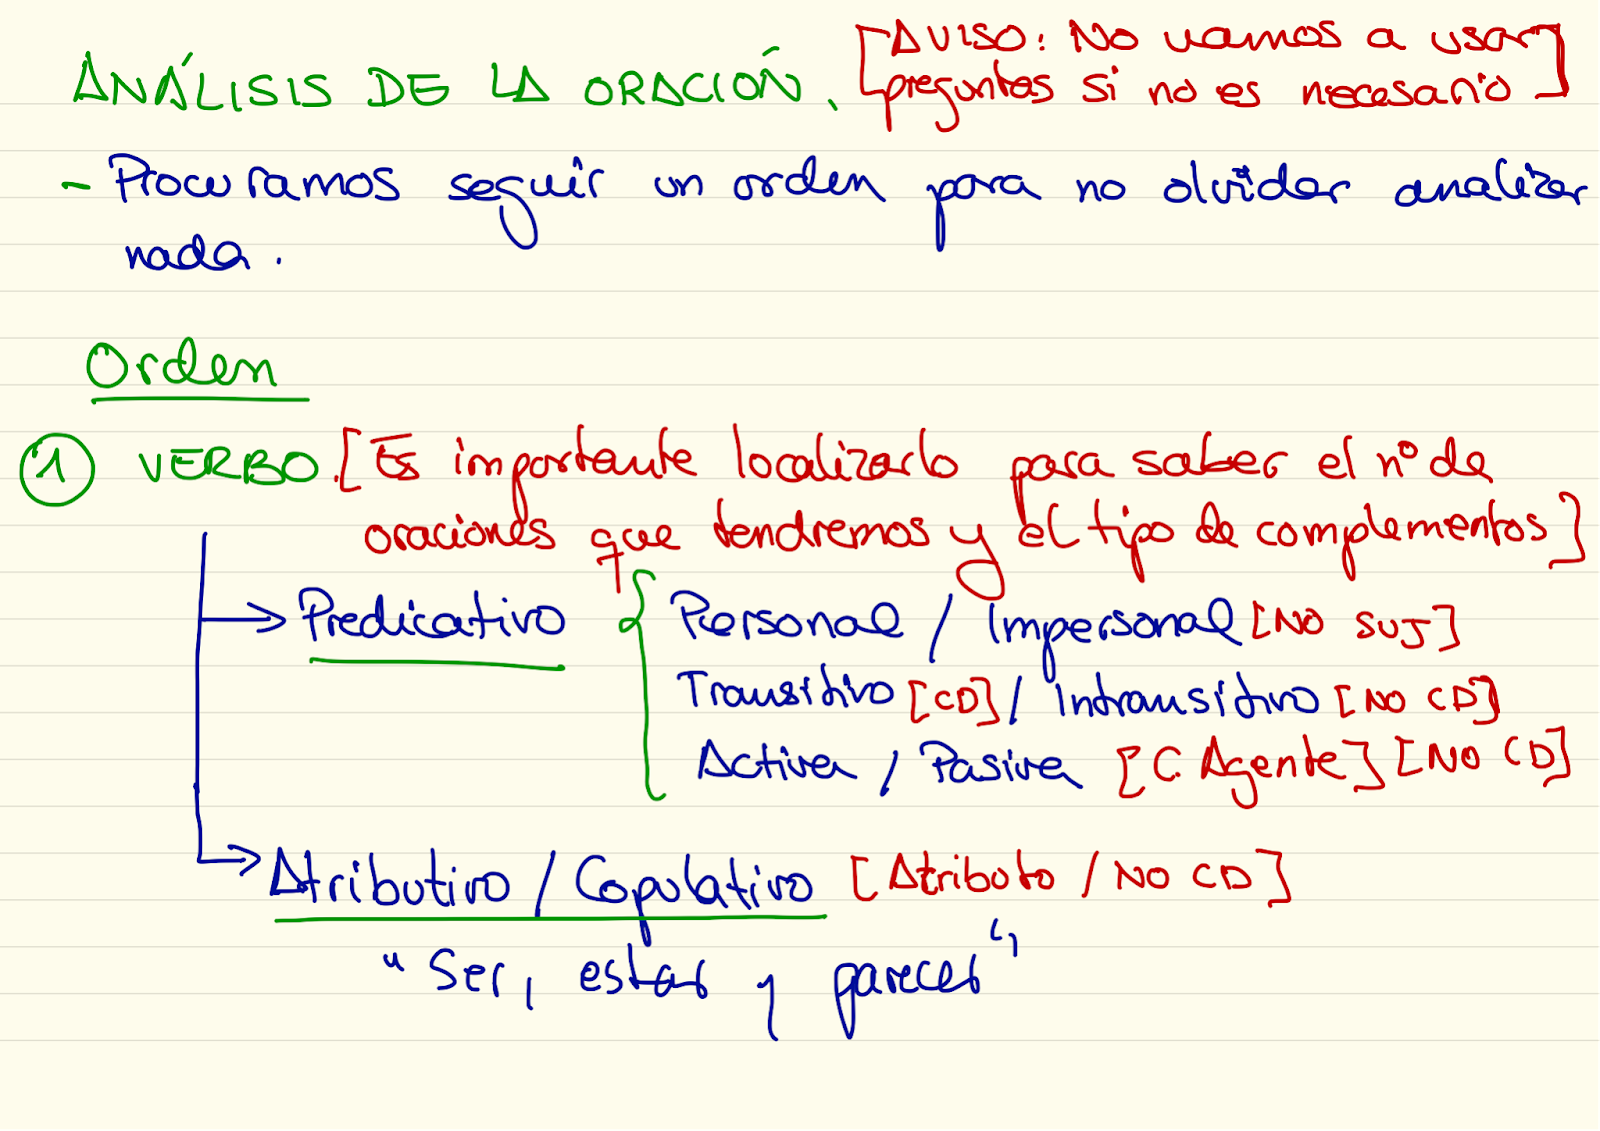 ANÁLISIS DE LA ORACIÓN. [AVISO: No vamos a usar
preguntas si no es necesario]
- Procuramos seguir un orden para no olvidar analizar
nada.
Orden
① VERBO. [Es importante localizarlo para saber el nº de
oraciones que tendremos y el tipo de complementos]
→ Predicativo { Personal / Impersonal [NO SUJ]
Transitivo [CD] / Intransitivo [NO CD]
Activa / Pasiva [C. Agente] [NO CD]
→ Atributivo / Copulativo [Atributo / NO CD]
"Ser, estar y parecer"